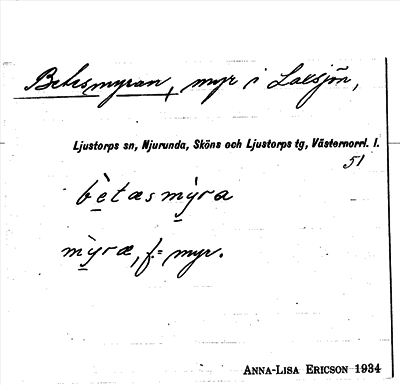 Betesmyran, myr i Laxsjön,
Ljustorps sn, Njurunda, Sköns och Ljustorps tg, Västernorrl. l.
51
bètæsmỳra
mỳræ, f. = myr.
ANNA-LISA ERICSON 1934